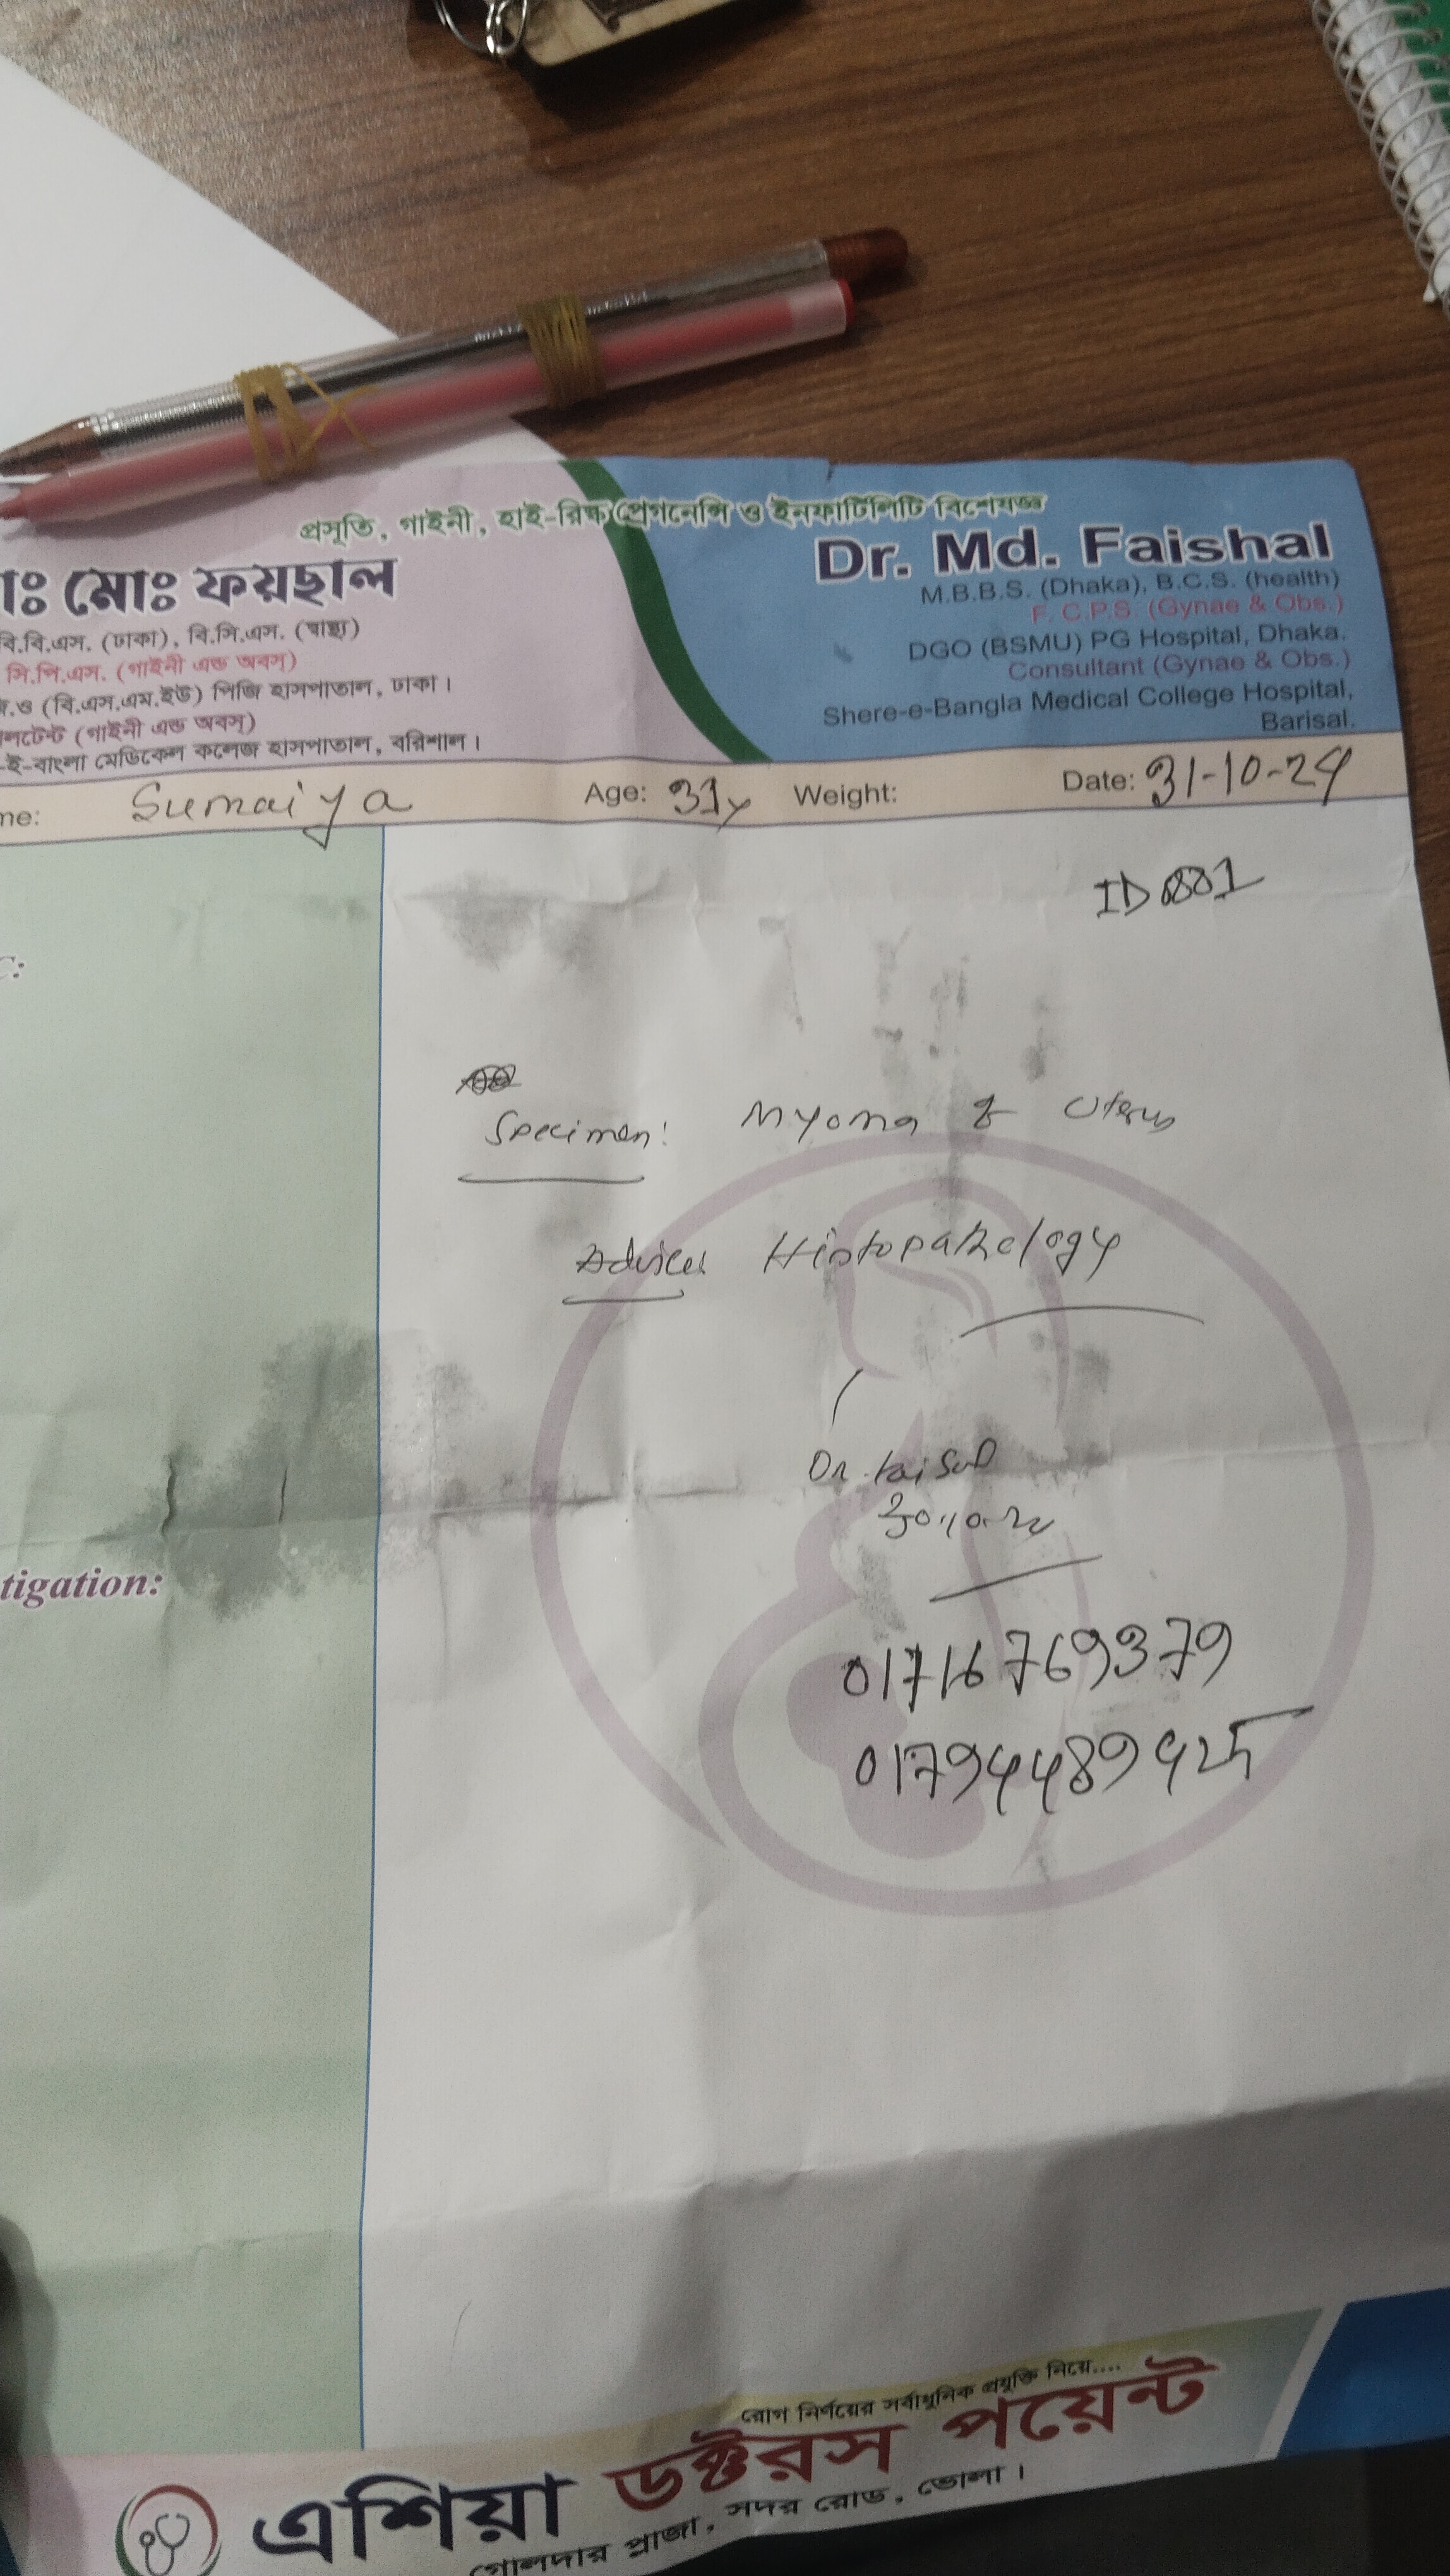 প্রসূতি, গাইনী, হাই-রিস্ক প্রেগনেন্সি ও ইনফার্টিলিটি বিশেষজ্ঞ
াঃ মোঃ ফয়ছাল
বি.বি.এস. (ঢাকা), বি.সি.এস. (স্বাস্থ্য)
সি.পি.এস. (গাইনী এন্ড অবস্)
ও (বি.এস.এম.ইউ) পিজি হাসপাতাল, ঢাকা।
লটেন্ট (গাইনী এন্ড অবস্)
-ই-বাংলা মেডিকেল কলেজ হাসপাতাল, বরিশাল।
Dr. Md. Faishal
M.B.B.S. (Dhaka), B.C.S. (health)
F. C.P.S. (Gynae & Obs.)
DGO (BSMU) PG Hospital, Dhaka.
Consultant (Gynae & Obs.)
Shere-e-Bangla Medical College Hospital,
Barisal.
me: Sumaiya Age: 31y Weight: Date: 31-10-24
ID 881
Specimen: Myoma of Uterus
Advice: Histopathology
Dr. Faisal
30.10.24
01716769379
01794489425
tigation:
রোগ নির্ণয়ের সর্বাধুনিক প্রযুক্তি নিয়ে....
এশিয়া ডক্টরস পয়েন্ট
গোলদার প্লাজা, সদর রোড, ভোলা।